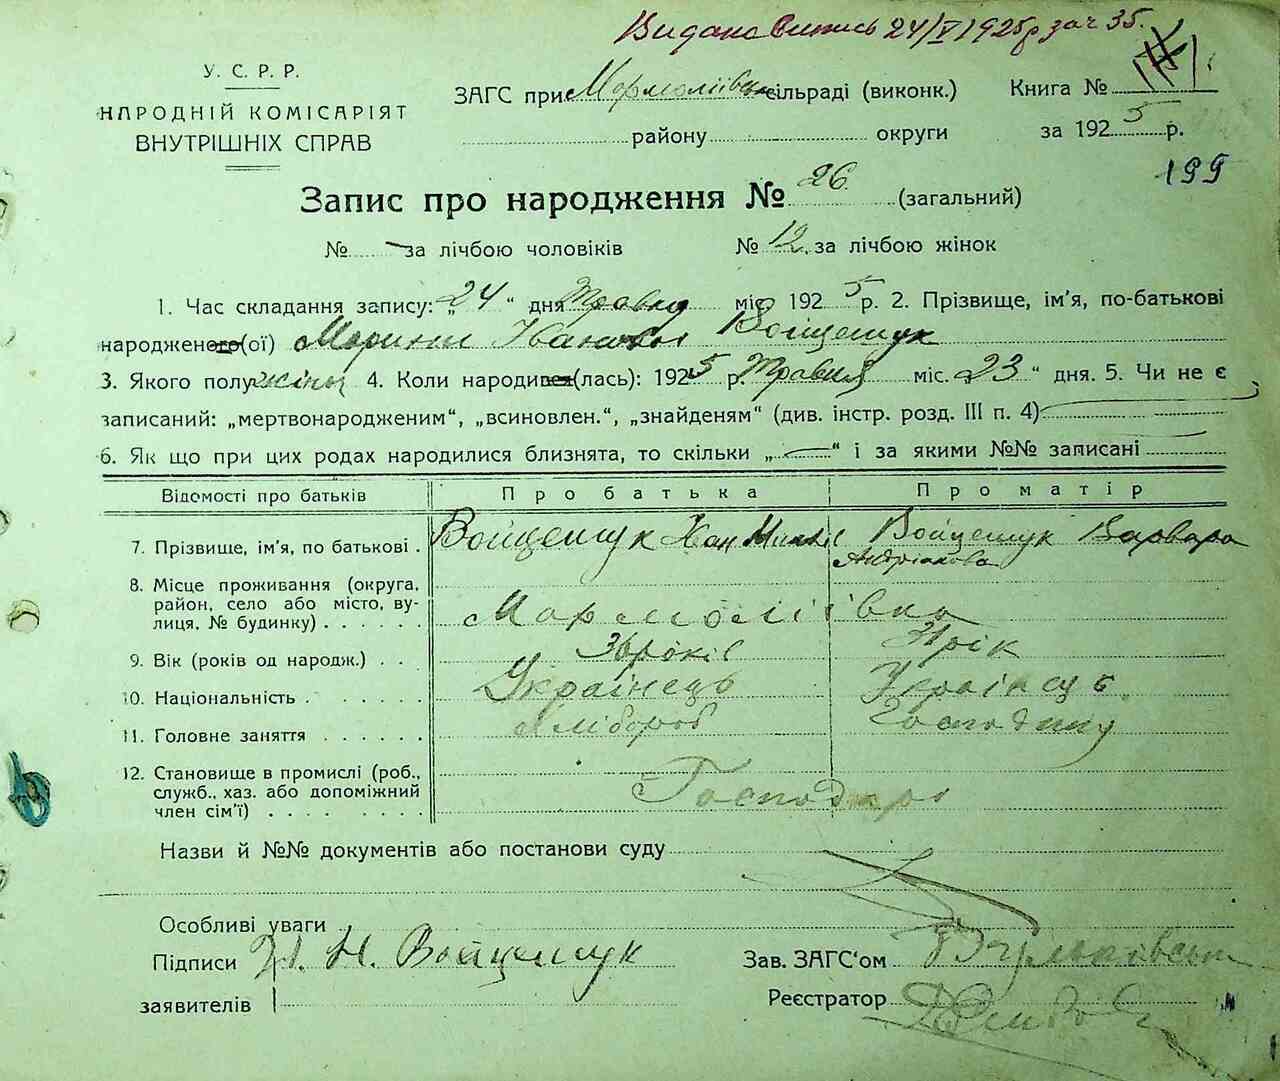 Видано Випись 24/V 1925 р за ч 35.
У. С. Р. Р.
НАРОДНІЙ КОМІСАРІЯТ
ВНУТРІШНІХ СПРАВ
ЗАГС при Мармоліївськ сільраді (виконк.) Книга №
району округи за 1925 р.
199
Запис про народження № 26 (загальний)
№ — за лічбою чоловіків № 12 за лічбою жінок
1. Час складання запису: „24“ дня Травня міс. 1925 р. 2. Прізвище, ім’я, по-батькові
народженого(ої) Войцешук
3. Якого полу жіно 4. Коли народився(лась): 1925 р. Травня міс. 23“ дня. 5. Чи не є
записаний: „мертвонародженим“, „всиновлен.“, „знайденям“ (див. інстр. розд. III п. 4)
6. Як що при цих родах народилися близнята, то скільки „—“ і за якими №№ записані
Відомості про батьків Про батька Про матір
7. Прізвище, ім’я, по батькові . Войцешук Іван Войцешук Варвара
Андріянова
8. Місце проживання (округа,
район, село або місто, ву-
лиця, № будинку) . . . . . . Мармоліївка
9. Вік (років од народж.) . . . 36 років рік
10. Національність . . . . . . Українець Українець
11. Головне заняття . . . . . . Хлібороб Господиня
12. Становище в промислі (роб.,
служб., хаз. або допоміжний
член сім’ї) . . . . . . . . . Господарі
Назви й №№ документів або постанови суду
Особливі уваги
Підписи Войцешук Зав. ЗАГС’ом
заявителів Реєстратор